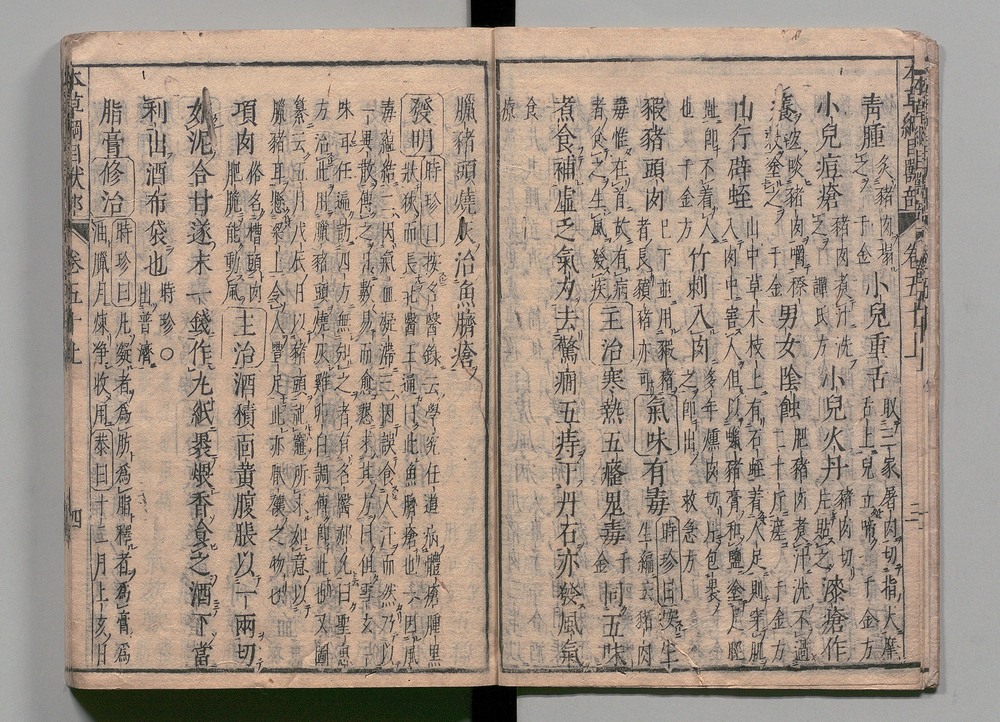 青腫 炙豬肉搨
之 千金
小兒重舌 取三家屠肉切指大摩
舌上兒立啼 千金方
小兒痘瘡 豬肉煮汁洗
之 譚氏方
小兒火丹 豬肉切
片貼之
漆瘡作
癢 宜啖豬肉嚼穄
穀塗之 千金
男女陰蝕 肥豬肉煮汁洗不過
二十斤瘥 千金方
山行辟蛭 山中草木枝上有石蛭着人足則穿肌
入肉中害人但以臘豬膏和鹽塗足脛
趾即不着人
也 千金方
竹刺入肉 多年燻肉切片包裹
之即出 救急方
豭豬頭肉 已下並用豭豬
者良豶豬亦可
氣味有毒 時珍曰按生
生編云豬肉
毒惟在首故有病
者食之生風發疾
主治寒熱五癃鬼毒 千
金
同五味
煮食補虛乏氣力去驚癇五痔下丹石亦發風氣
食
療
臘豬頭燒灰治魚臍瘡
發明 時珍曰按名醫錄云學究任道病體瘡腫黑
狀狹而長北醫王通曰此魚臍瘡也一因風
毒蘊結二因氣血凝滯三因誤食人汗而然乃以
一異散傅之日數易而愈懇求其方曰但雪玄一
味耳任遍訪四方無知之者有名醫郝允曰聖惠
方治此用臘豬頭燒灰雞卵白調傅即此也又圖
纂云五月戊辰日以豬頭祀竈所求如意以
臘豬耳懸梁上令人豐足此亦厭禳之物也
項肉 俗名槽頭肉
肥脆能動風
主治酒積面黃腹脹以一兩切
如泥合甘遂末一錢作丸紙裹煨香食之酒下當
利出酒布袋也 時珍○
出普濟
脂膏 修治 時珍曰凡凝者爲肪爲脂釋者爲膏爲
油臘月煉淨收用 恭曰十二月上亥日
本草綱目獸部 卷五十上 四